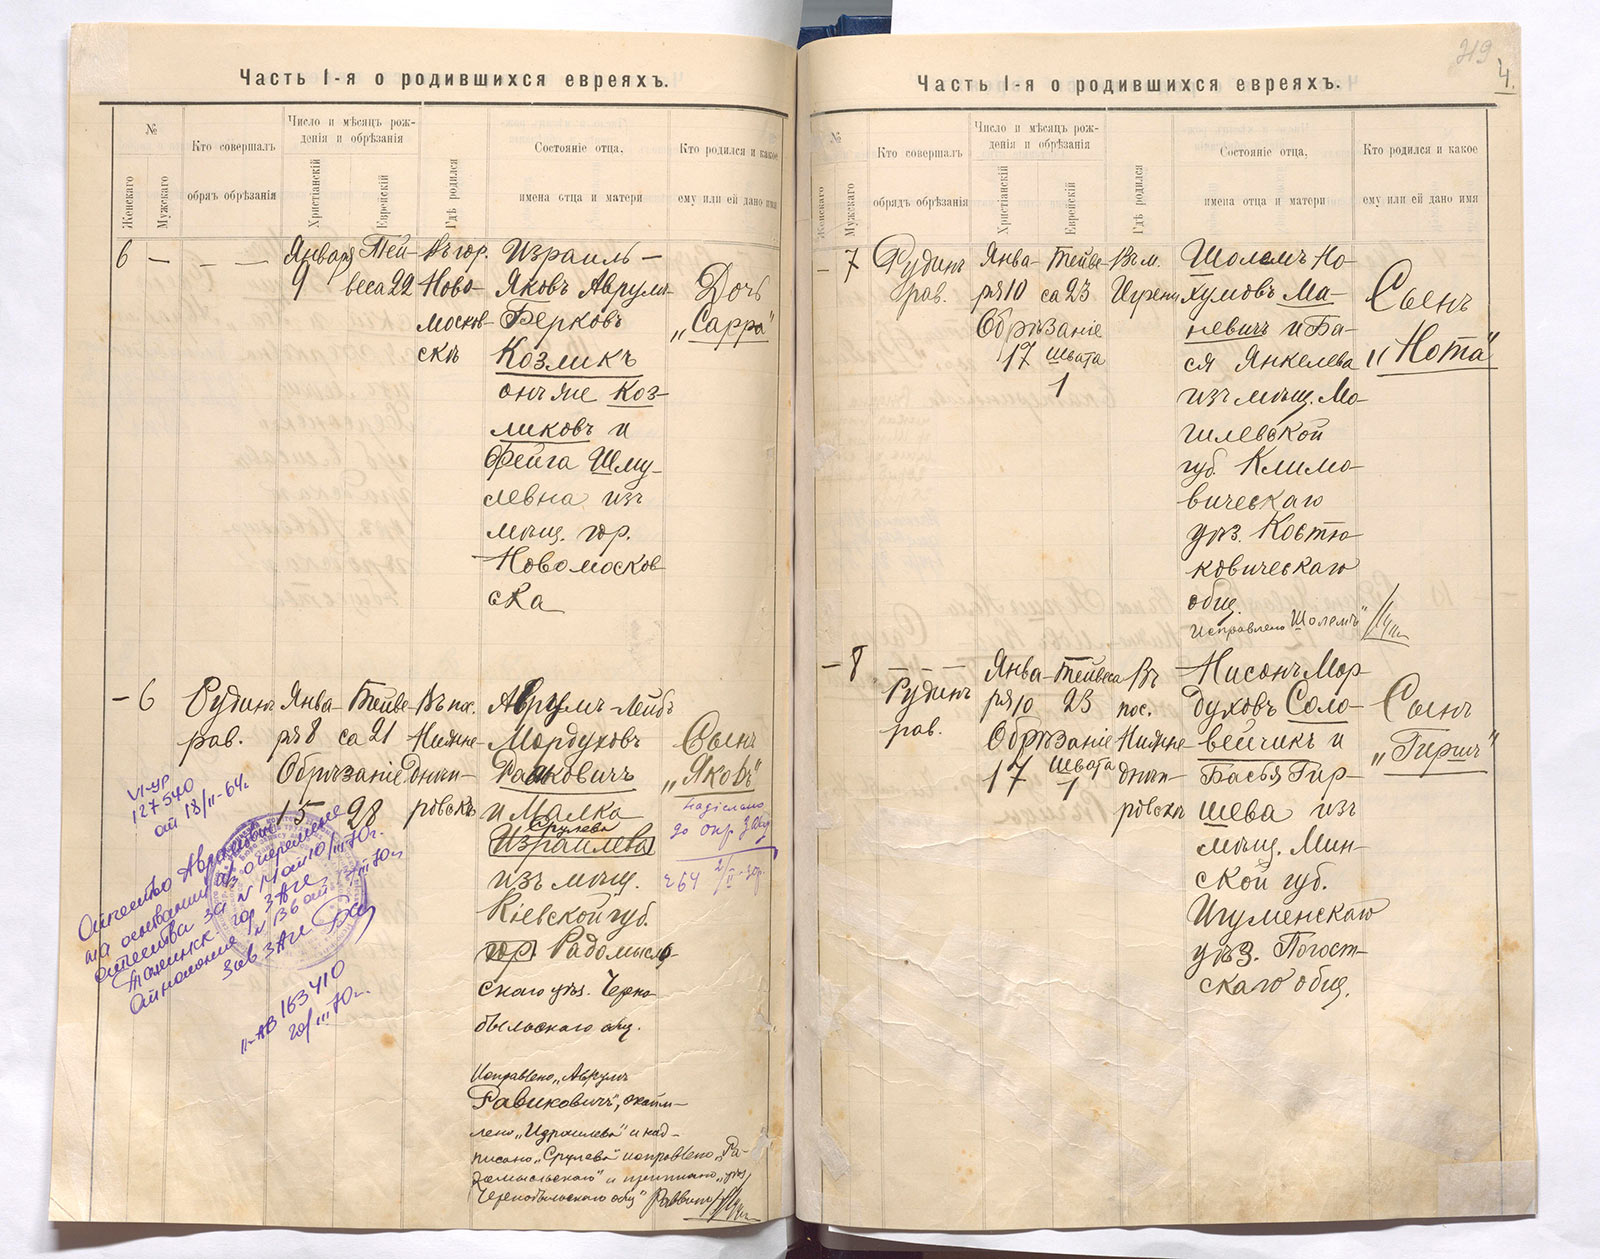 Часть I-я о родившихся евреяхъ.
№
Женскаго
Мужскаго
Кто совершалъ
обрядъ обрѣзанія
Число и мѣсяцъ рож-
денія и обрѣзанія
Христіанскій
Еврейскій
Гдѣ родился
Состояніе отца,
имена отца и матери
Кто родился и какое
ему или ей дано имя
6 — — —
Января
9
Тей-
веса 22
Въ гор.
Ново-
москов-
скѣ
Израиль —
Яковъ Аврумъ
Берковъ
Козликъ
онъ же Коз-
ликовъ и
Фейга Шму-
левна изъ
мѣщ. гор.
Новомосков
ска
Дочь
„Сарра"
— 6
Рудинъ
рав.
Янва-
ря 8
Тейве
са 21
Обрѣзаніе
15 28
Въ пос.
Нижне-
Днѣп-
ровскъ
Аврумъ-Лейбъ
Мордуховъ
Равиковичъ
и Малка
Срулева
Израилева
изъ мѣщ.
Кіевской губ.
гор. Радомысль
скаго уѣз. Черно
быльскаго общ.
Сынъ
„Яковъ"
Надіслано
264
Исправлено „Аврумъ
Равиковичъ",
лено „Израилева" и над-
писано „Срулева" исправлено „Ра-
домысльскаго" и приписано „уѣз.
Чернобыльскаго общ" Раввинъ
VI-УР
127540
от 18/II-64г.
Отчество Аврамович
на основании из. о перемене
отчества за N 14 от 10/III 70г.
гор ЗАГС
N 136 от
Зав ЗАГС
II-АВ 163410
20/III 70г.
219
4.
Часть I-я о родившихся евреяхъ.
№
Женскаго
Мужскаго
Кто совершалъ
обрядъ обрѣзанія
Число и мѣсяцъ рож-
денія и обрѣзанія
Христіанскій
Еврейскій
Гдѣ родился
Состояніе отца,
имена отца и матери
Кто родился и какое
ему или ей дано имя
— 7
Рудинъ
рав.
Янва-
ря 10
Тейве-
са 23
Обрѣзаніе
17 Швата
1
Въ м.
Игрени
Шолемъ Но-
хумовъ Ма-
невичъ и Ба-
ся Янкелева
изъ мѣщ. Мо-
гилевской
губ. Климо-
вическаго
уѣз. Костю-
ковическаго
общ.
Исправлено „Шолемъ"
Сынъ
„Нота"
— 8
Рудинъ
рав.
Янва-
ря 10
Тейвеса
23
Обрѣзаніе
17 Швата
1
Въ
пос.
Нижне
днѣп-
ровскъ
Нисонъ Мор
духовъ Соло-
вейчикъ и
Басья Гир-
шева изъ
мѣщ. Мин-
ской губ.
Игуменскаго
уѣз. Погост-
скаго общ.
Сынъ
„Гиршъ"